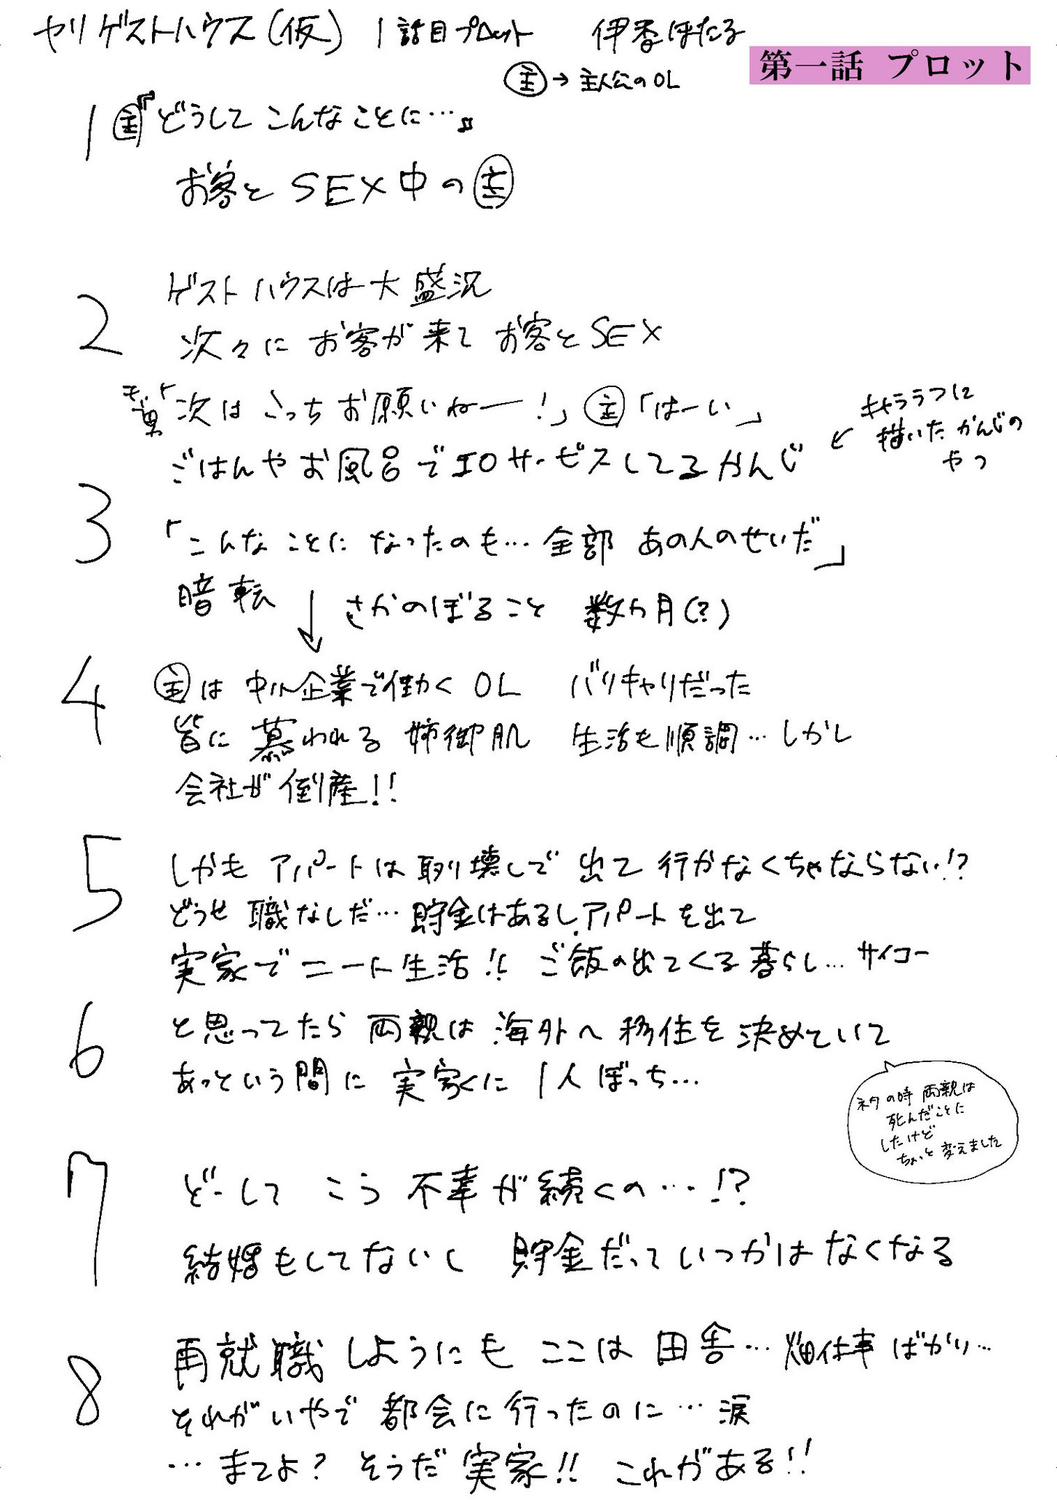 ヤリゲストハウス(仮) 1話目プロット 伊香ほたる
第一話 プロット
主→主人公のOL
1 主『どうしてこんなことに…』
お客とSEX中の主
2 ゲストハウスは大盛況
次々にお客が来てお客とSEX
「次はこっちお願いねー!」主「はーい」
ごはんやお風呂でエロサービスしてるかんじ
←キャララフに
描いたかんじの
やつ
3 「こんなことになったのも…全部あの人のせいだ」
暗転 ↓ さかのぼること 数ヵ月(?)
4 主は中小企業で働くOL バリキャリだった
皆に慕われる姉御肌 生活も順調…しかし
会社が倒産!!
5 しかもアパートは取り壊しで出て行かなくちゃならない!?
どうせ職なしだ…貯金はあるしアパートを出て
実家でニート生活!! ご飯の出てくる暮らし…サイコー
6 と思ってたら両親は海外へ移住を決めていて
あっという間に実家に1人ぼっち…
ネタの時両親は
死んだことに
したけど
ちょっと変えました
7 どーしてこう不幸が続くの…!?
結婚もしてないし 貯金だっていつかはなくなる
8 再就職しようにもここは田舎…畑仕事ばかり…
それがいやで都会に行ったのに…涙
…まてよ? そうだ実家!! これがある!!